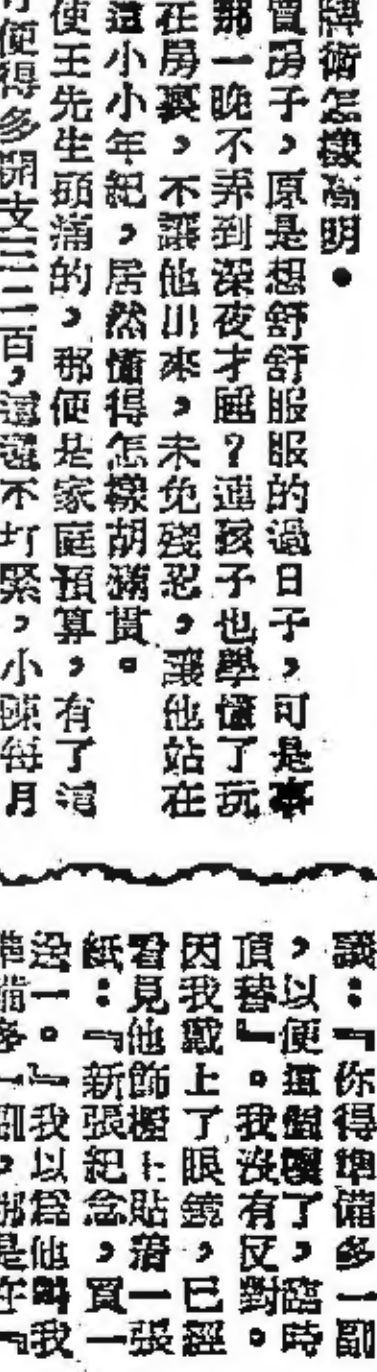 牌術怎樣高明。
買房子，原是想舒舒服服的過日子，可是事
那一晚不弄到深夜才睡？連孩子也學懂了玩
在房裏，不讓他出來，未免殘忍，讓他站在
這小小年紀，居然懂得怎樣胡滿貫。
使王先生頭痛的，那便是家庭預算，有了這
便得多開支三二百，還還不打緊，小陳每月
議：『你得準備多一副
，以便這個壞了，臨時
頂替』。我沒有反對。
因我戴上了眼鏡，已經
看見他飾櫃上貼着一張
紙：『新張紀念，買一
送一。』我以爲他叫我
準備多一副，那是在『